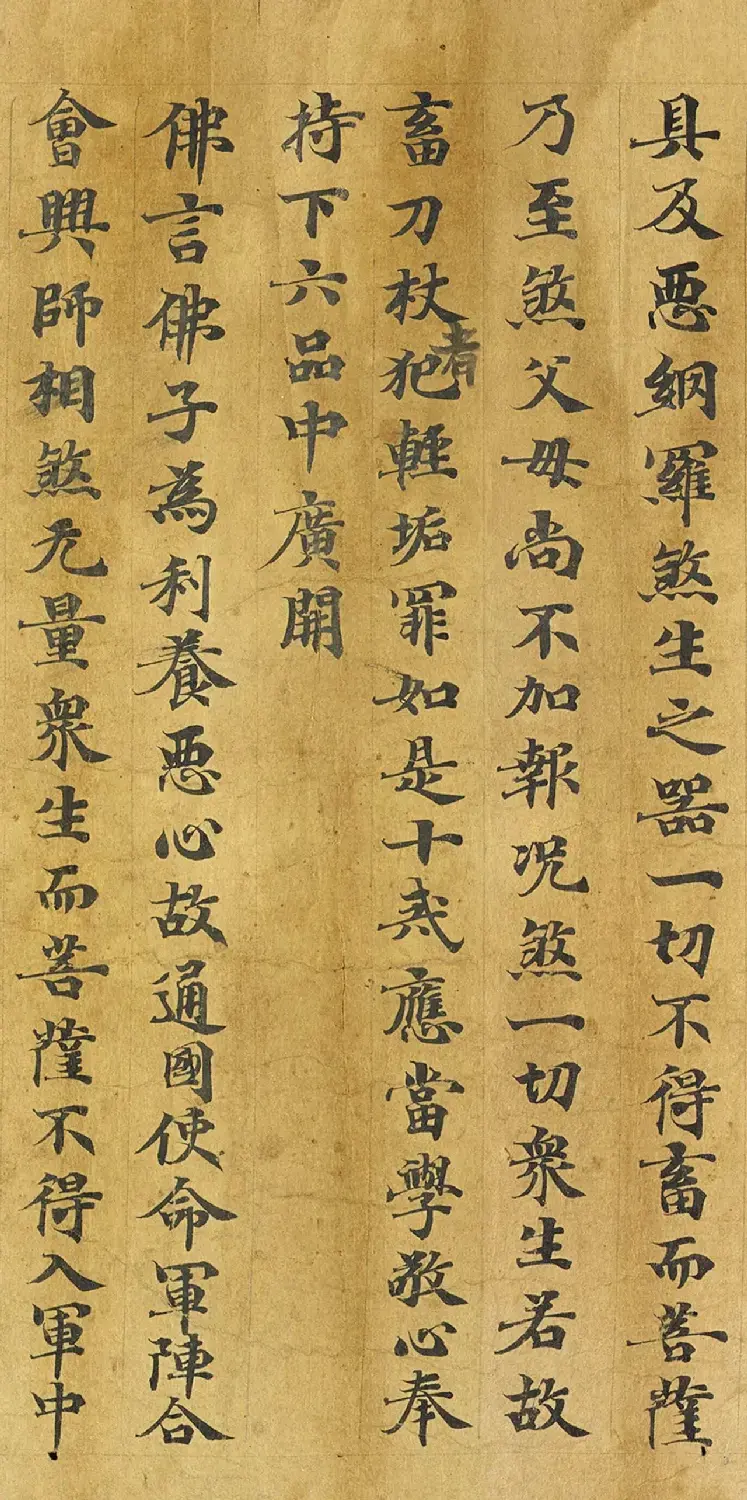 具及惡網羅煞生之器一切不得畜而菩薩
乃至煞父母尚不加報况煞一切衆生若故
畜刀杖者犯輕垢罪如是十戒應當學敬心奉
持下六品中廣開
佛言佛子為利養惡心故通國使命軍陣合
會興師相煞无量衆生而菩薩不得入軍中